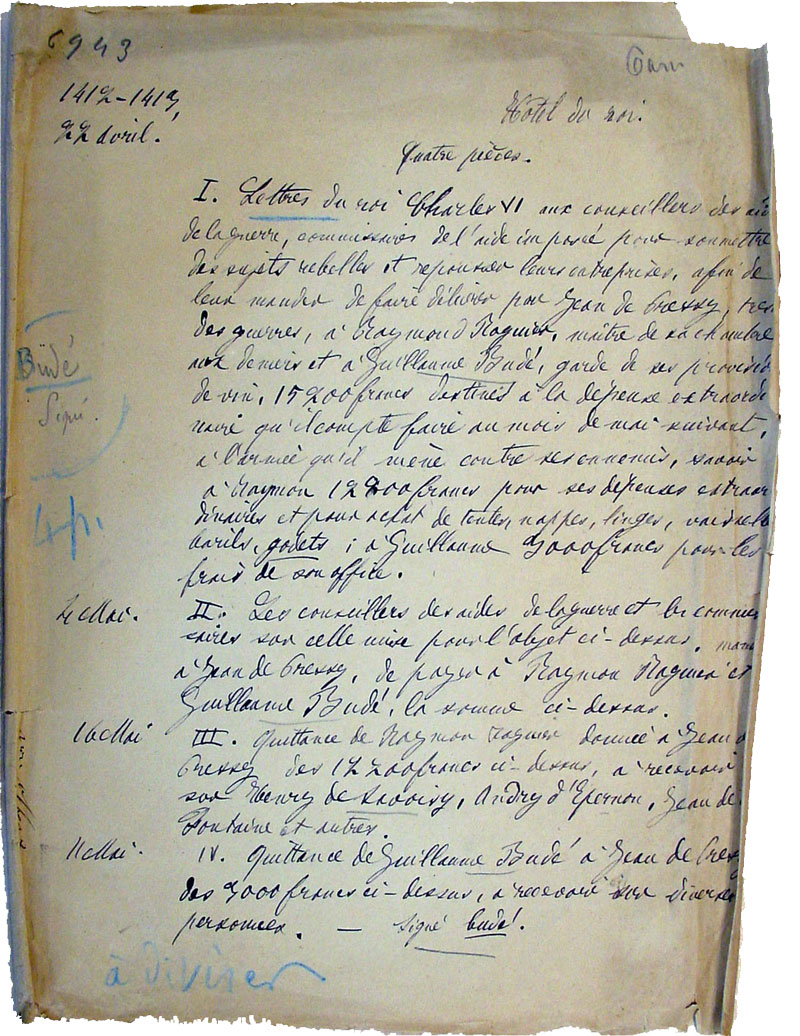 6943
1412-1413,
22 avril.
Hôtel du roi.
Quatre pièces.
I. Lettres du roi Charles VI aux conseillers des aid
de la guerre, commissaires de l'aide imposé pour soumettre
des sujets rebelles et repousser leurs entreprises, afin de
leur mander de faire délivrer par Jean de Pressy, tres
des guerres, à Raymond Raguier, maître de sa chambre
aux deniers et à Guillaume Budé, garde de ses provisio
de vin, 15200 francs destinés à la dépense extraordi
naire qu'il compte faire au mois de mai suivant,
à l'armée qu'il mène contre ses ennemis, savoir
à Raymon 12200 francs pour ses dépenses extraor
dinaires et pour achat de tentes, nappes, linges, vaisselle
barils, godets ; à Guillaume 3000 francs pour les
frais de son office.
Budé
Signé.
4 p.
2 Mai.
II. Les conseillers des aides de la guerre et les commis
saires sur celle mise pour l'objet ci-dessus, man
à Jean de Pressy, de payer à Raymon Raguier et
Guillaume Budé, la somme ci-dessus.
16 Mai
III. Quittance de Raymon Raguier donnée à Jean d
Pressy des 12200 francs ci-dessus, à recevoir
sur Henry de Savoisy, Andry d'Epernon, Jean de
Fontaine et autres.
11 Mai.
IV. Quittance de Guillaume Budé à Jean de Pressy
des 3000 francs ci-dessus, à recevoir sur diverses
personnes. — Signé Budé.
à diviser